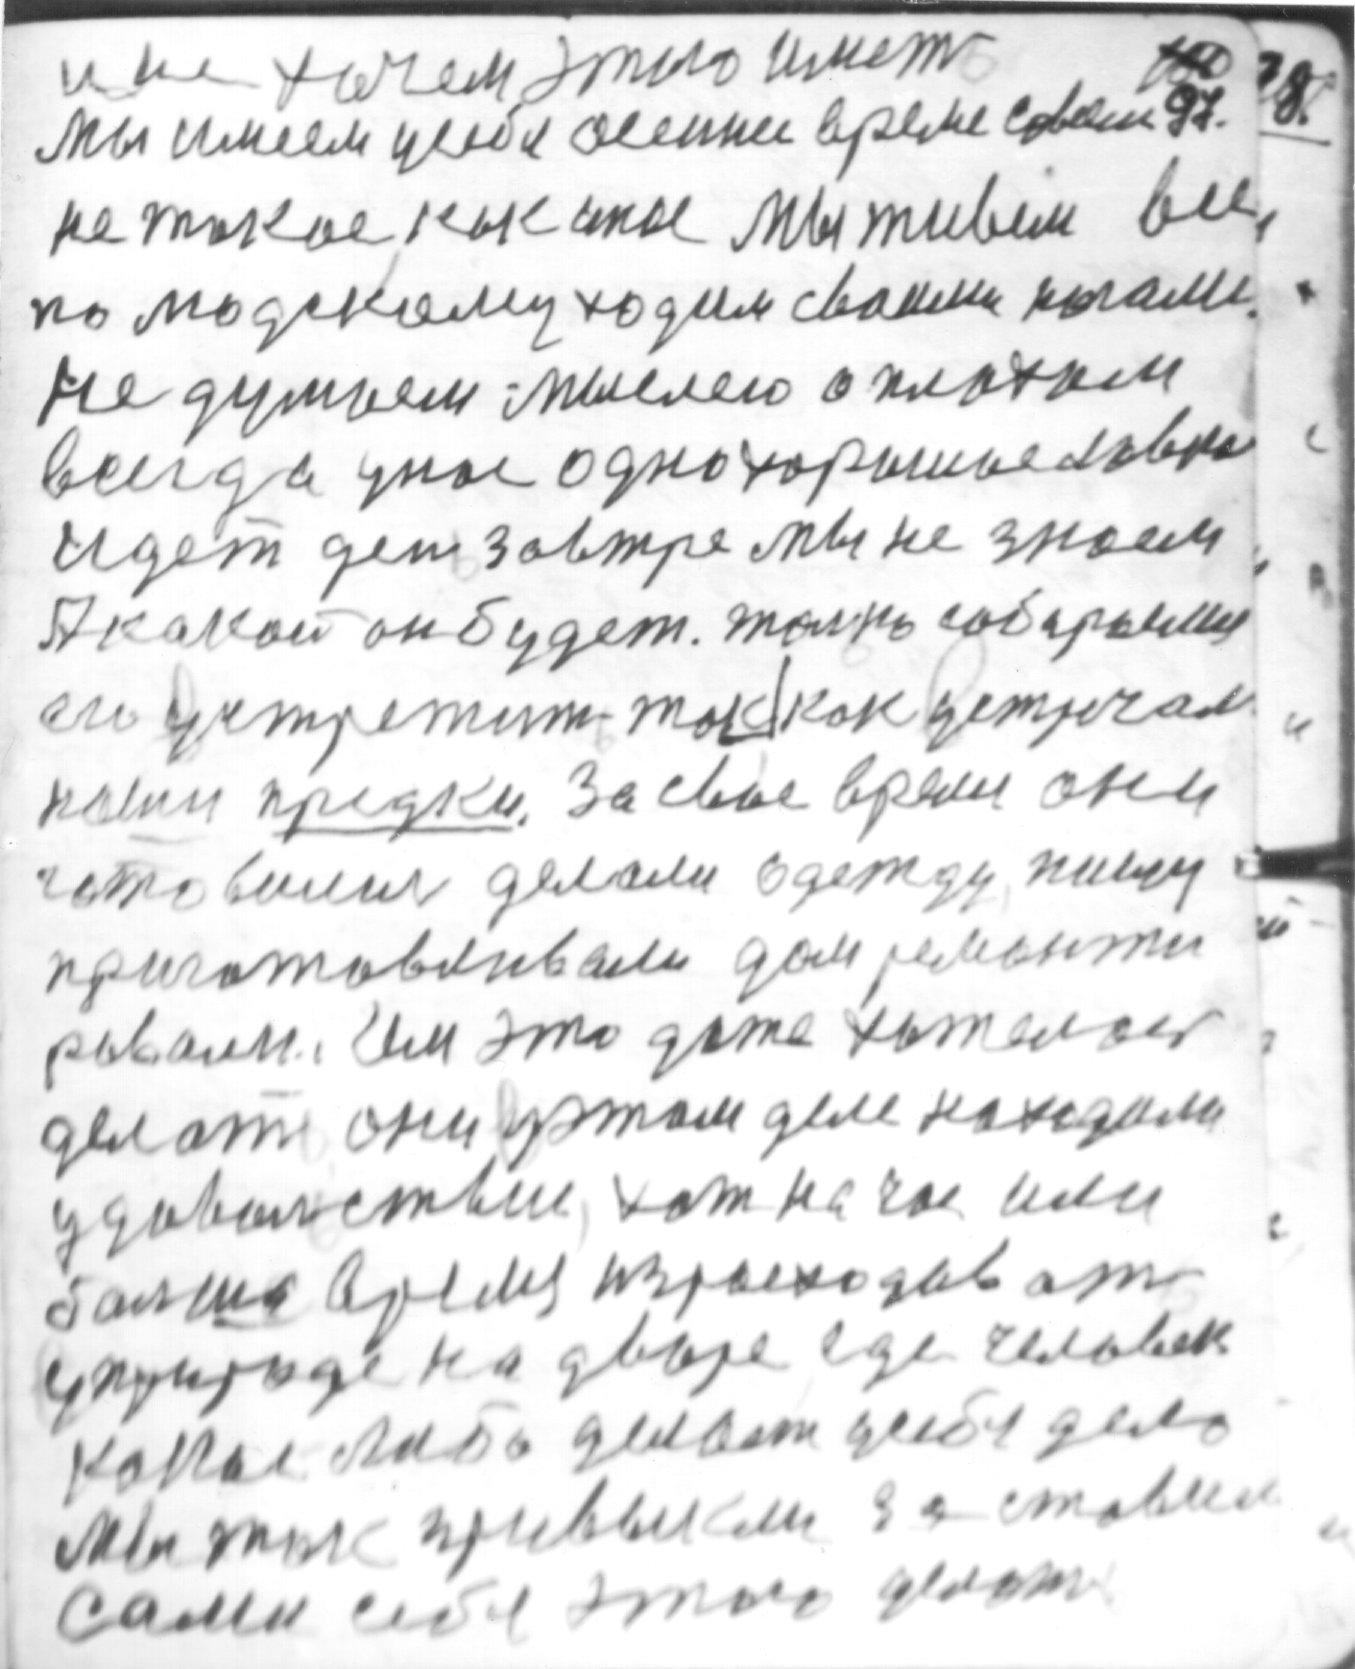 и не хочем этого иметь
Мы имеем у себя осенние време совсем 97.
не такое как оное Мы живем все
по людскому ходим своими ногами.
Не думаем мыслею о плохом
всегда у нас одно хорошое
Идет ден завтре мы не знаем
А какой он будет. толко собираемся
его устретит так как устречали
наши предки. За свое время они
готовилися делали одежду, пишу
приготовливали дом ремонти
ровали. Им это даже хотелося
делать они у этом деле находили
удоволствие, хот на час или
болше время израсходыват
у природе на дворе где человек
какое либо делает у себя дело
Мы так привыкли заставили
сами себя этого делат